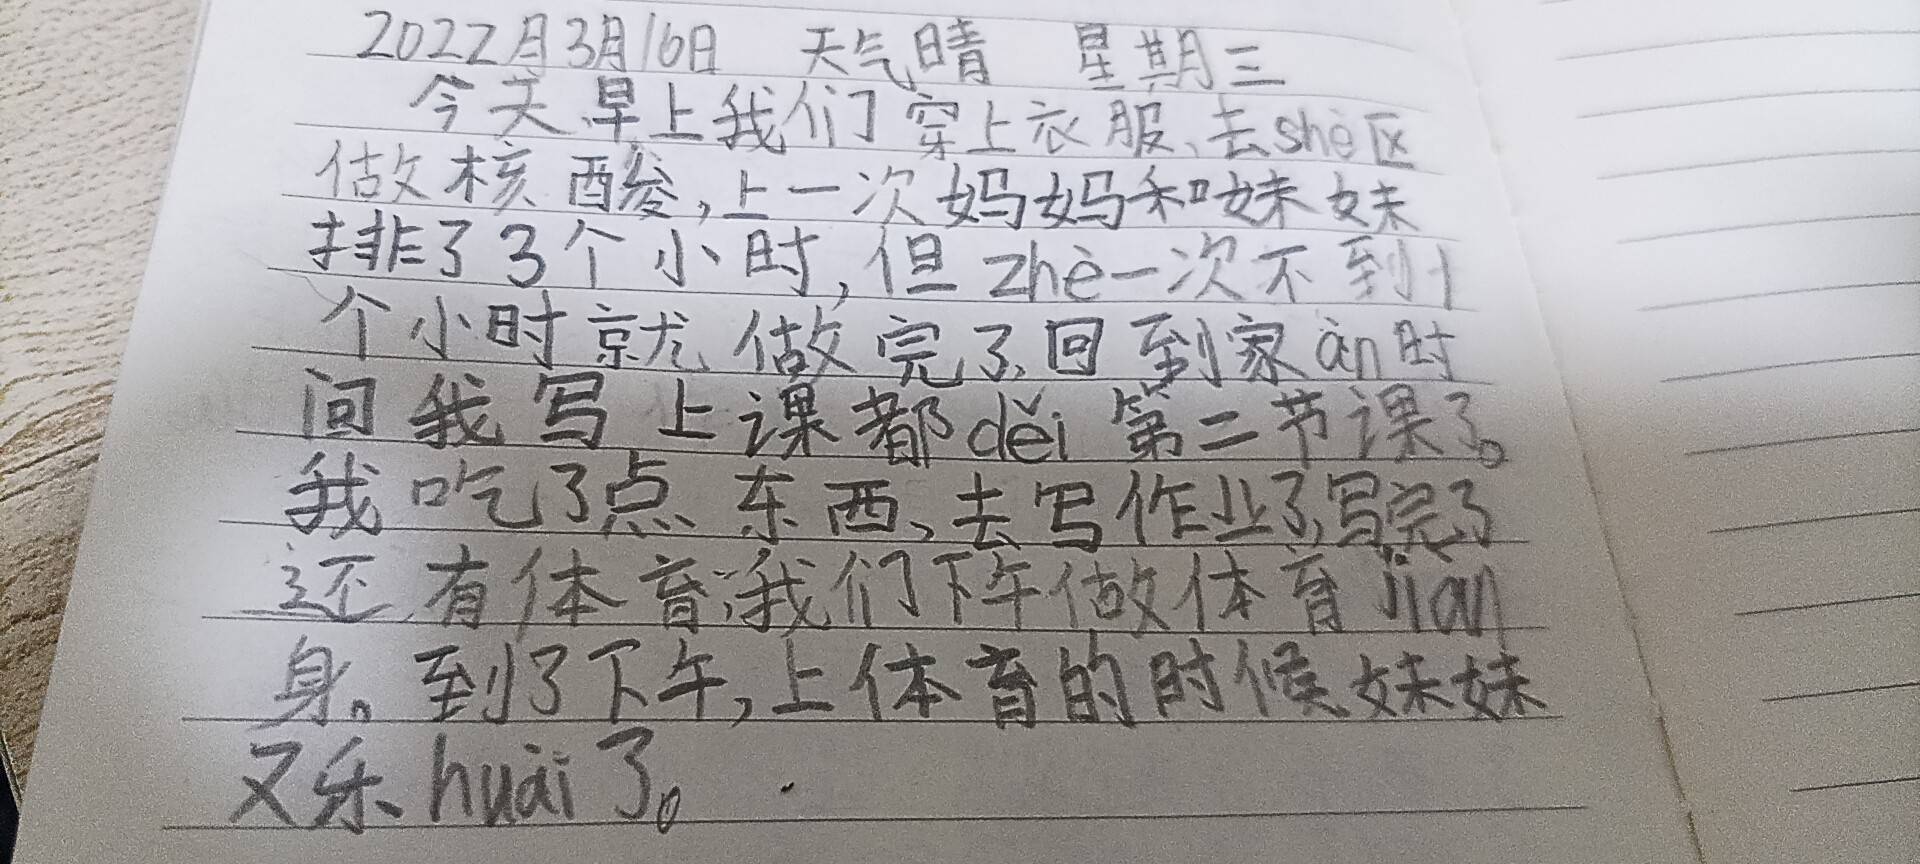 2022月3月16日 天气晴 星期三
今天早上我们穿上衣服、去shè区
做核酸,上一次妈妈和妹妹
排了3个小时,但zhè一次不到1
个小时就做完了,回到家àn时
间我写上课都děi第二节课了。
我吃了点东西、去写作业了,写完了
还有体育,我们下午做体育jiàn
身。到了下午,上体育的时候、妹妹
又乐huài了。